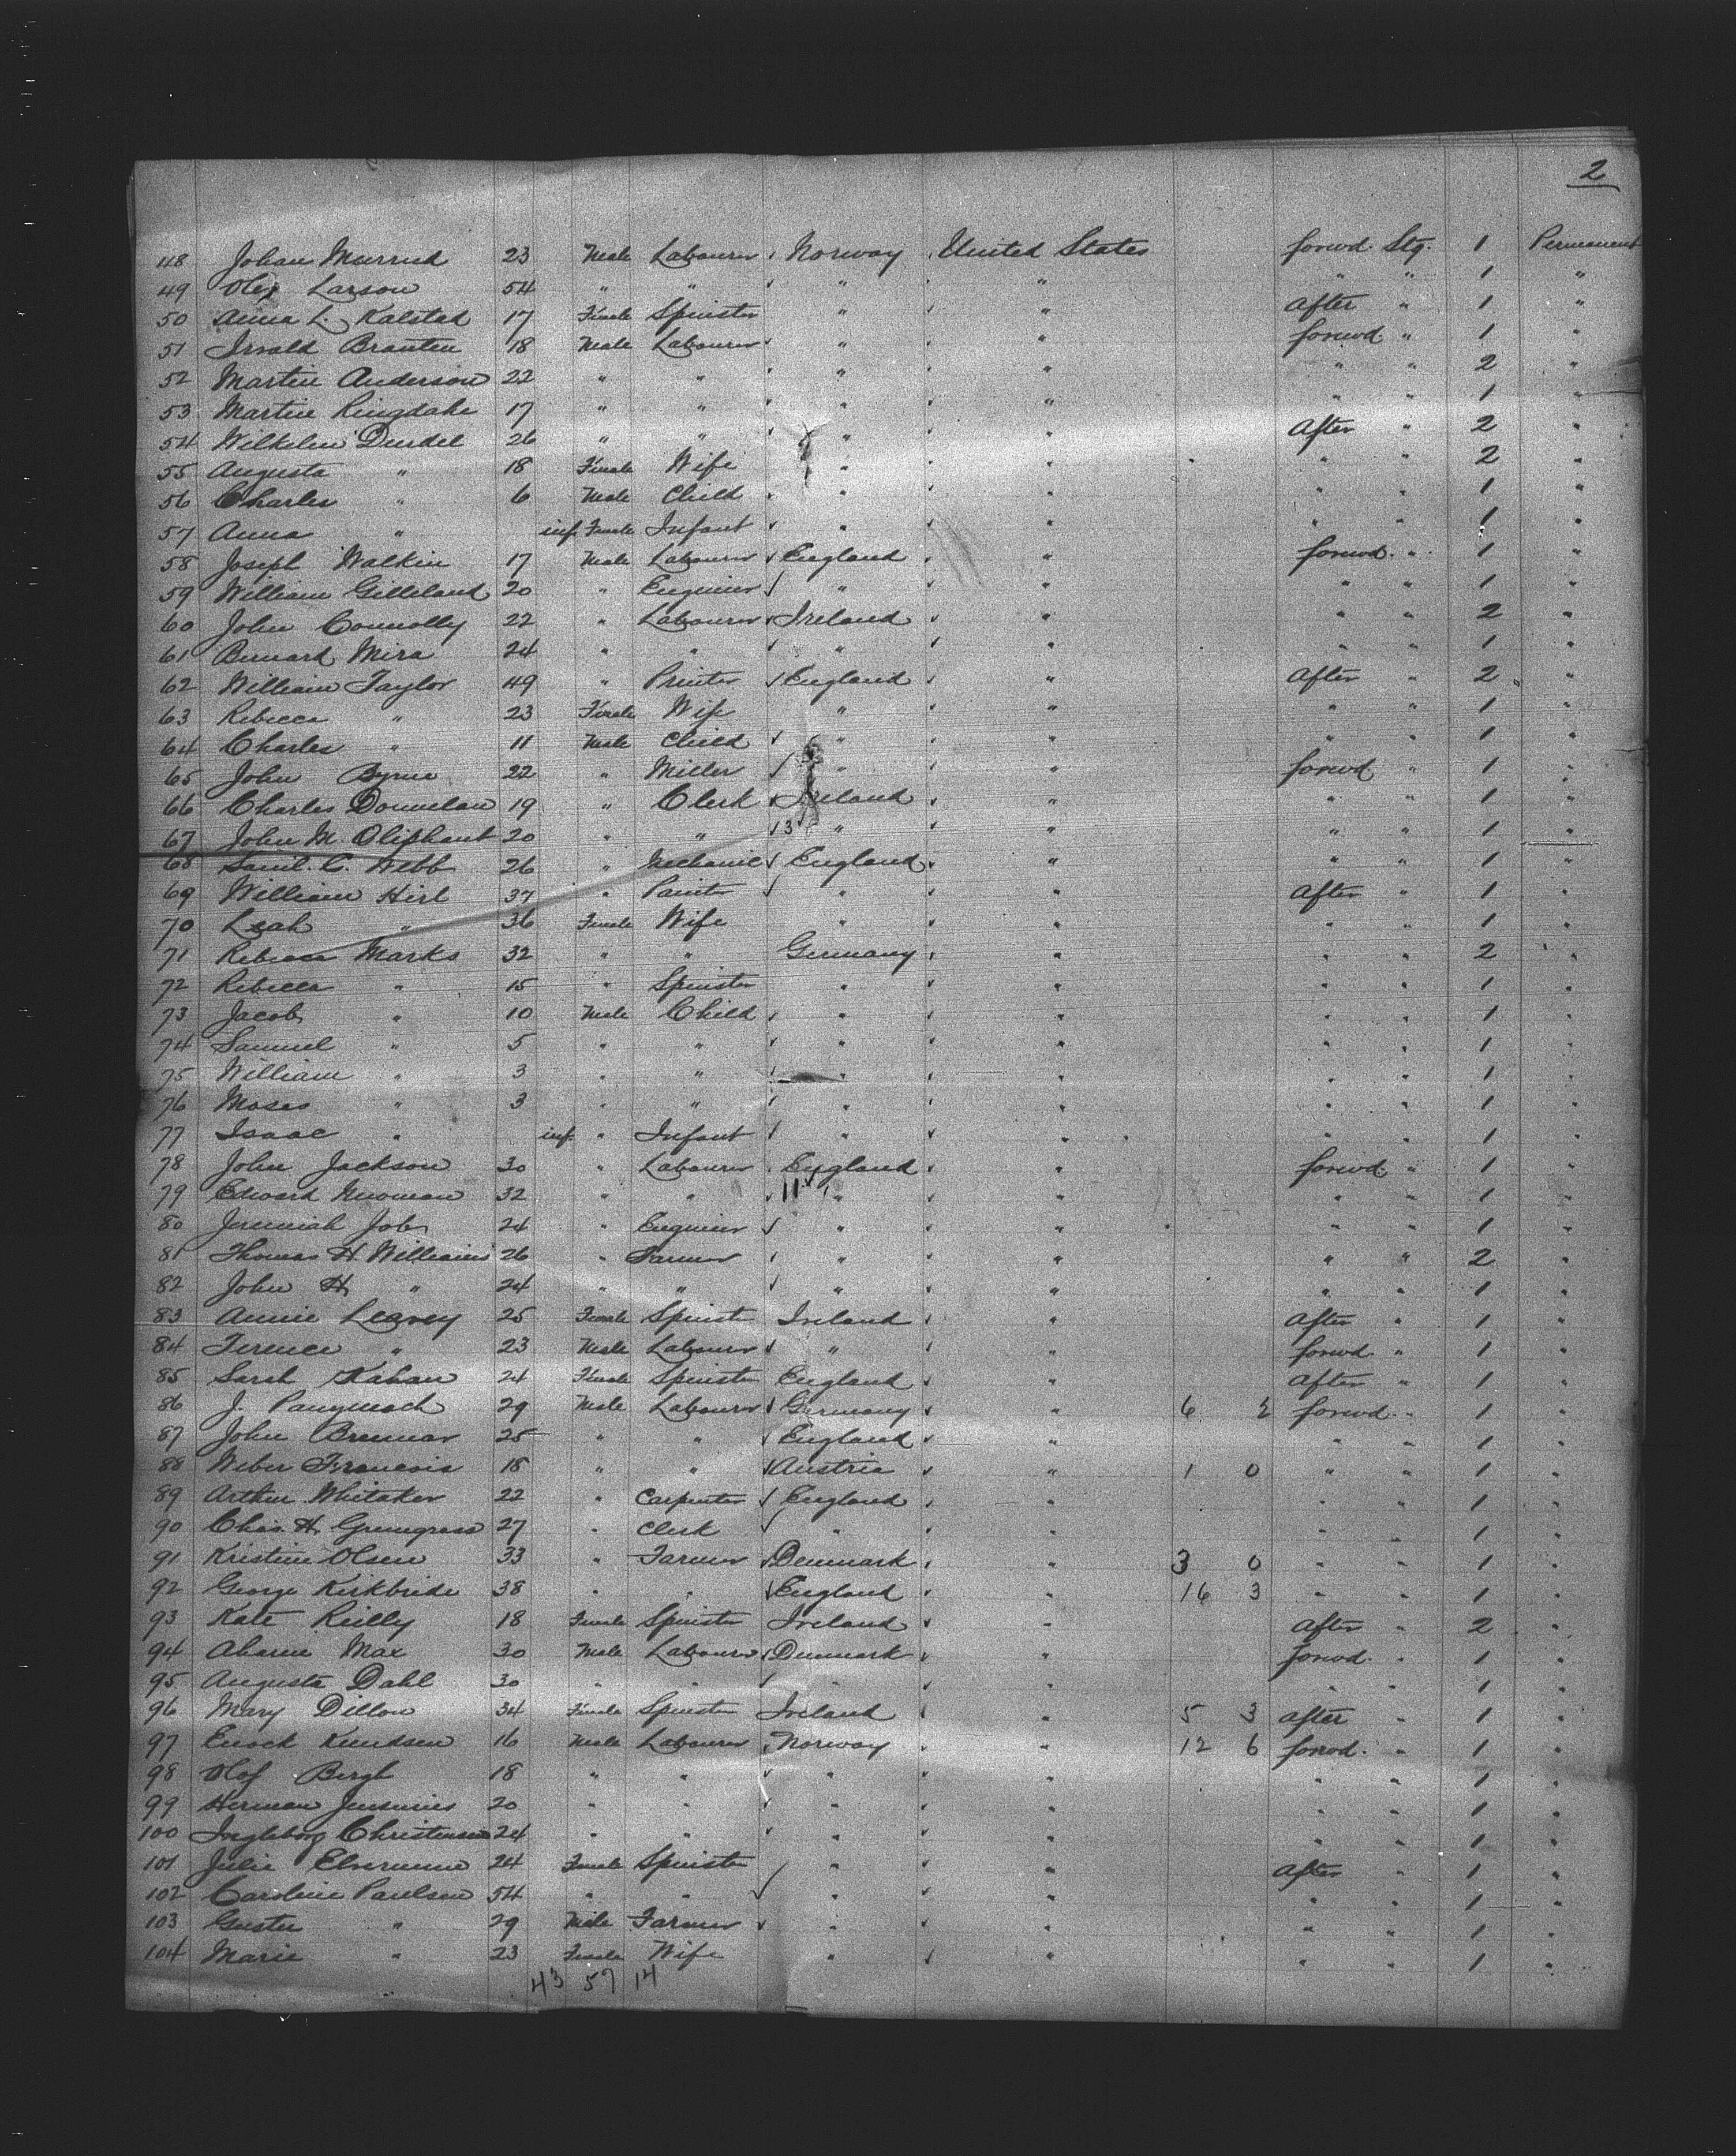 2
48 Johan Murrud 23 Male Labourer Norway United States forwd. Stg. 1 Permanent
49 Ole Larson 54 " " " " " " 1 "
50 Anna L. Kalstad 17 Female Spinster " " After " 1 "
51 Braaten 18 Male Labourer " " forwd " 1 "
52 Martin Anderson 22 " " " " " " 2 "
53 Martin Ringdahl 17 " " " " " " 1 "
54 Wilhelm 26 " " " " After " 2 "
55 Augusta " 18 Female Wife " " " " 2 "
56 Charles " 6 Male Child " " " " 1 "
57 Anna " inf Female Infant " " " " 1 "
58 Joseph Walkin 17 Male Labourer England " forwd. " 1 "
59 William Gilleland 20 " Engineer " " " " 1 "
60 John Connolly 22 " Labourer Ireland " " " 2 "
61 Bernard Mira 24 " " " " " " 1 "
62 William Taylor 49 " Printer England " After " 2 "
63 Rebecca " 23 Female Wife " " " " 1 "
64 Charles " 11 Male Child " " " " 1 "
65 John Byrne 22 " Miller " " forwd " 1 "
66 Charles Donnelan 19 " Clerk Ireland " " " 1 "
67 John M. Oliphant 20 " " 13 " " " " 1 "
68 Saml. C. Webb 26 " Mechanic England " " " 1 "
69 William Hirl 37 " Painter " " After " 1 "
70 Leah " 36 Female Wife " " " " 1 "
71 Rebecca Marks 32 " " Germany " " " 2 "
72 Rebecca " 15 " Spinster " " " " 1 "
73 Jacob " 10 Male Child " " " " 1 "
74 Samuel " 5 " " " " " " 1 "
75 William " 3 " " " " " " 1 "
76 Moses " 3 " " " " " " 1 "
77 Isaac " inf. " Infant " " " " 1 "
78 John Jackson 30 " Labourer England " forwd " 1 "
79 Edward Newman 32 " " 11 " " " " 1 "
80 Jeremiah Job 24 " Engineer " " " " 1 "
81 Thomas H. Williams 26 " Farmer " " " " 2 "
82 John H " 24 " " " " " " 1 "
83 Annie Leavey 25 Female Spinster Ireland " After " 1 "
84 Terence " 23 Male Labourer " " forwd. " 1 "
85 Sarah Kahan 24 Female Spinster England " After " 1 "
86 J. 29 Male Labourer Germany " 6 2 forwd. " 1 "
87 John Brennan 25 " " England " " " 1 "
88 Weber Francois 18 " " Austria " 1 0 " " 1 "
89 Arthur Whitaker 22 " Carpenter England " " " 1 "
90 Chas. H. Greengrass 27 " Clerk " " " " 1 "
91 Kristine Olsen 33 " Farmer Denmark " 3 0 " " 1 "
92 George Kirkbride 38 " " England " 16 3 " " 1 "
93 Kate Reilly 18 Female Spinster Ireland " After " 2 "
94 Max 30 Male Labourer Denmark " forwd. " 1 "
95 Augusta Dahl 30 " " " " " " 1 "
96 Mary Dillon 34 Female Spinster Ireland " 5 3 After " 1 "
97 Enock Knudsen 16 Male Labourer Norway " 12 6 forwd. " 1 "
98 Olof Bergh 18 " " " " " " 1 "
99 Herman 20 " " " " " " 1 "
100 Ingleborg Christensen 24 " " " " " " 1 "
101 Julie 24 Female Spinster " " After " 1 "
102 Caroline Paulsen 54 " " " " " " 1 "
103 Guster " 29 Male Farmer " " " " 1 "
104 Marie " 23 Female Wife " " " " 1 "
43 57 14